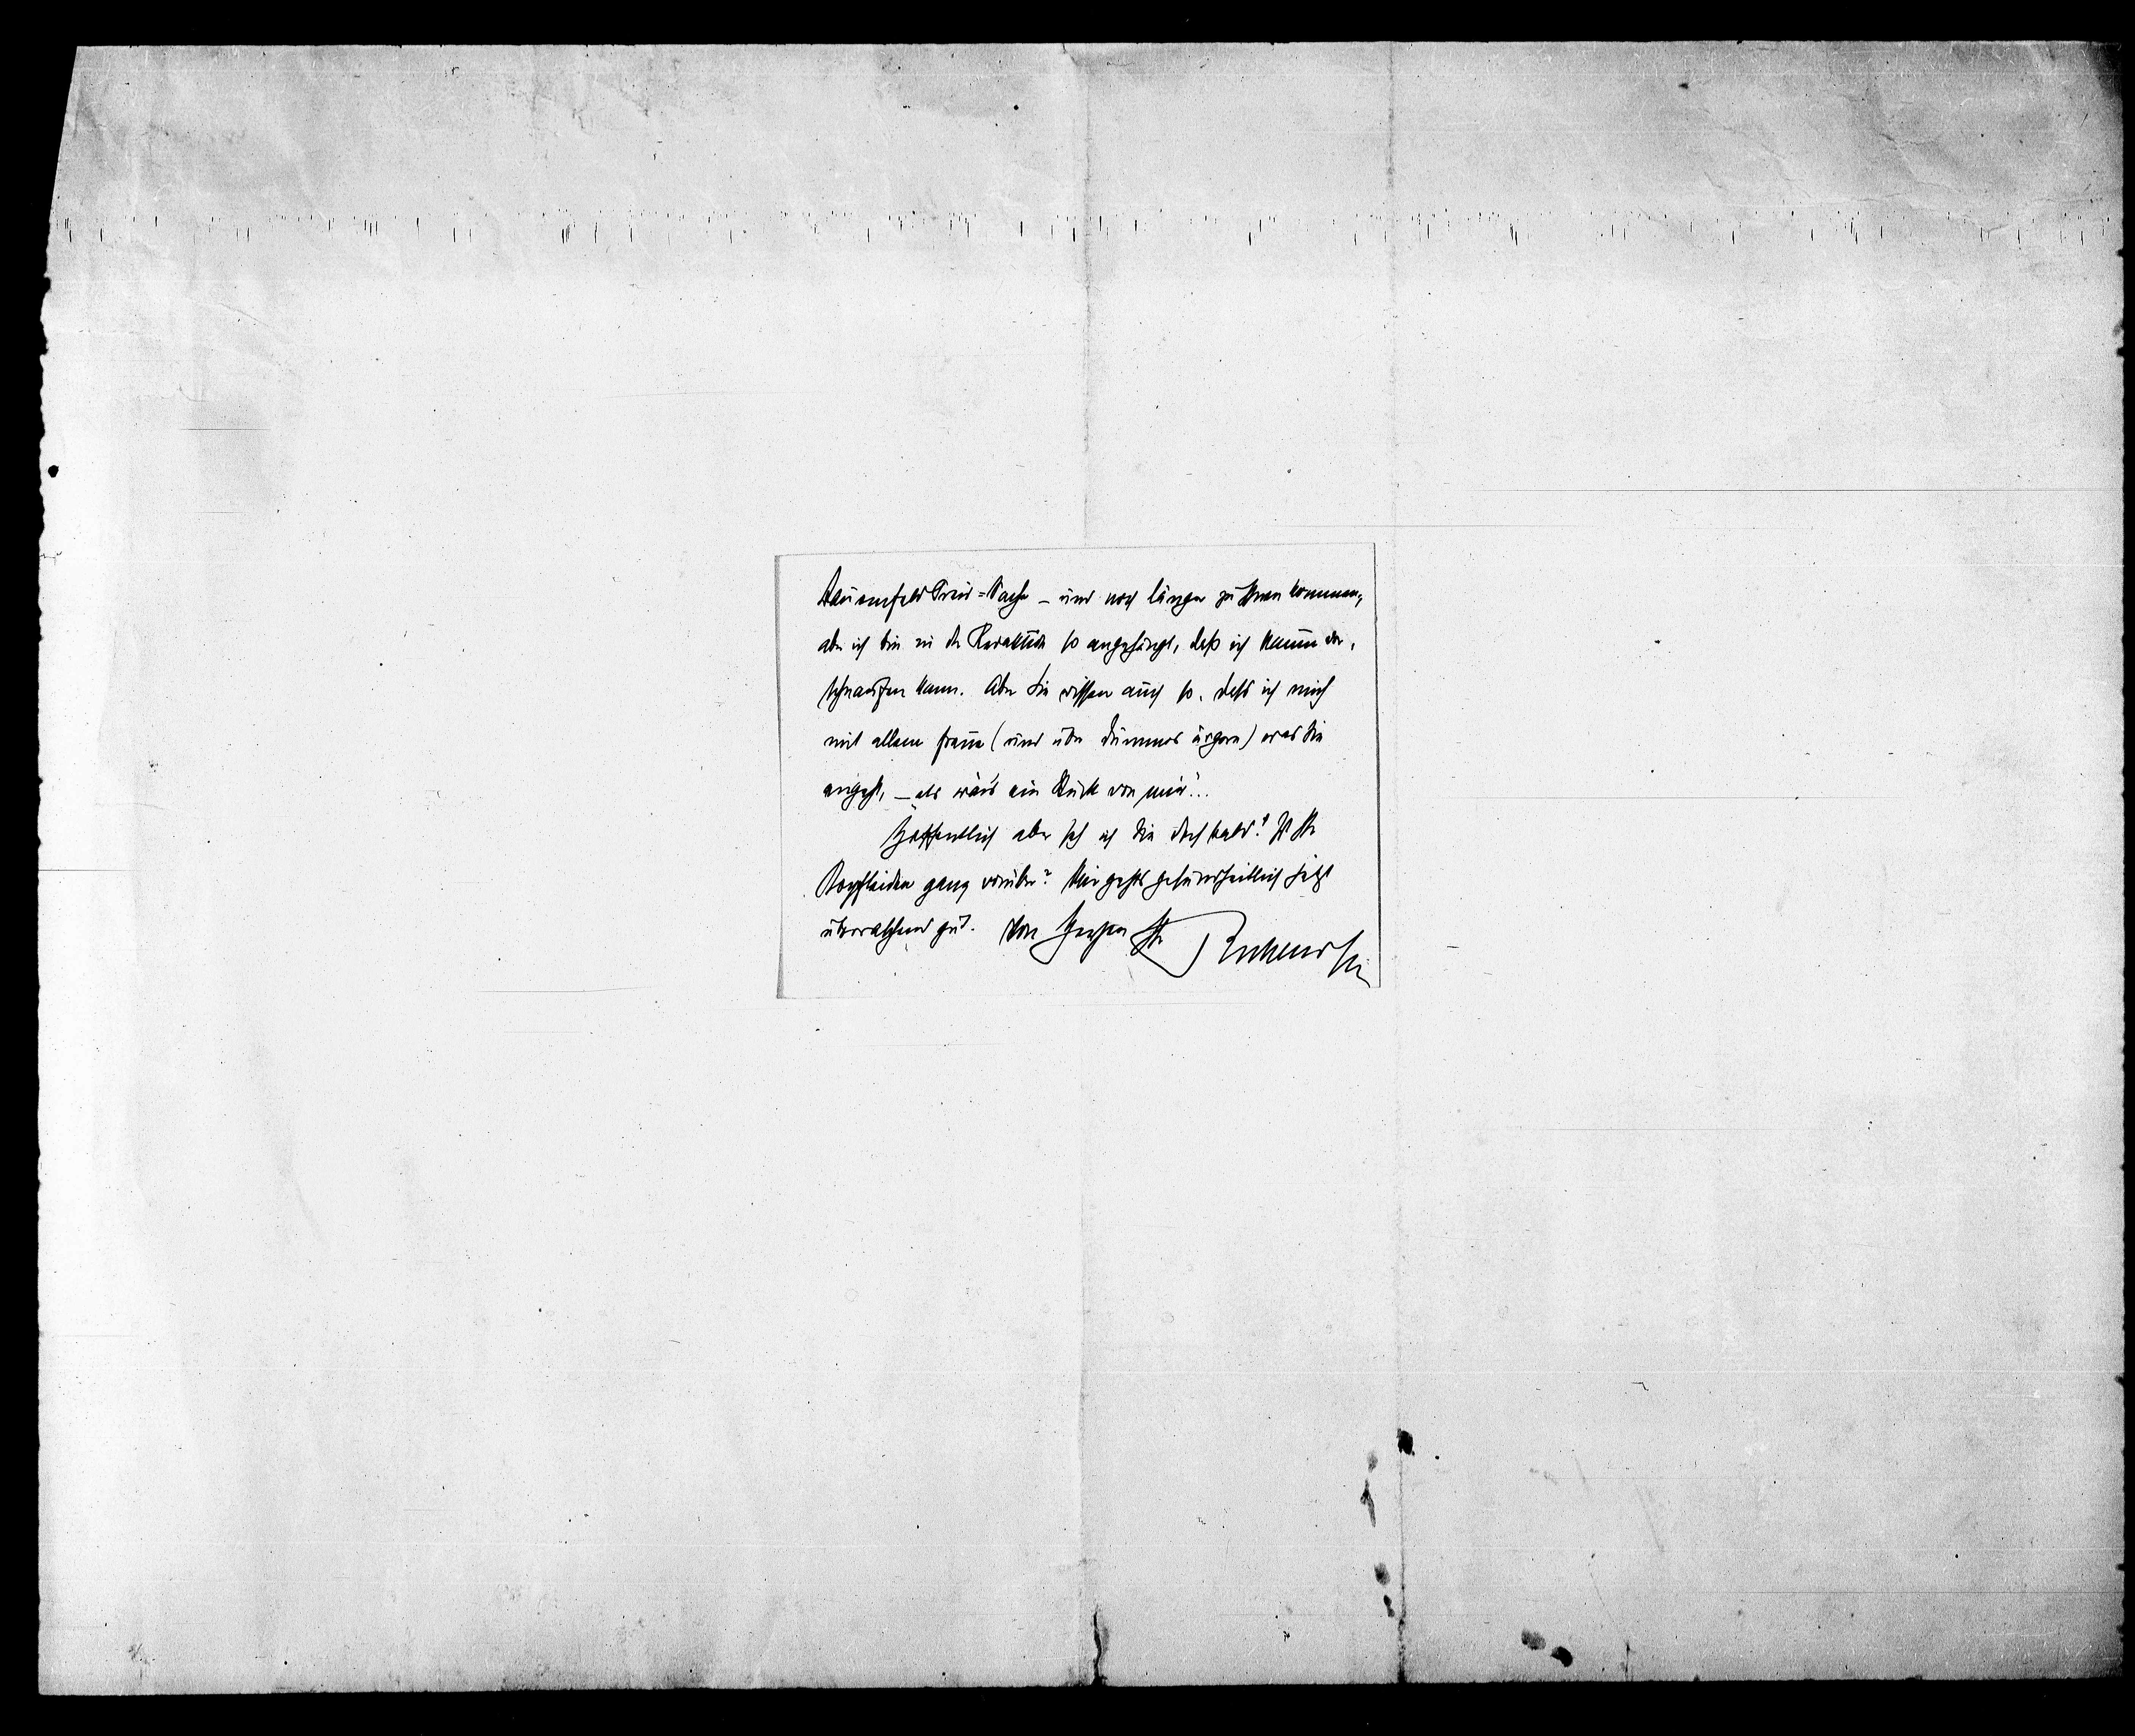 Bauernfeld Preis=Sache – und noch länger zu Ihnen kommen,
aber ich bin in der Redaktion so angehängt, daß ich kaum ver¬
schnaufen kann. Aber Sie wissen auch so, dass ich mich
mit allem freue (und über Dummes ärgere) was Sie
angeht, – als wär's ein Stück von mir!..
Hoffentlich aber seh ich Sie doch bald? Ist Ihr
Kopfleiden ganz vorüber? Mir gehts gesundheitlich jetzt
überraschend gut. Von Herzen Ihr